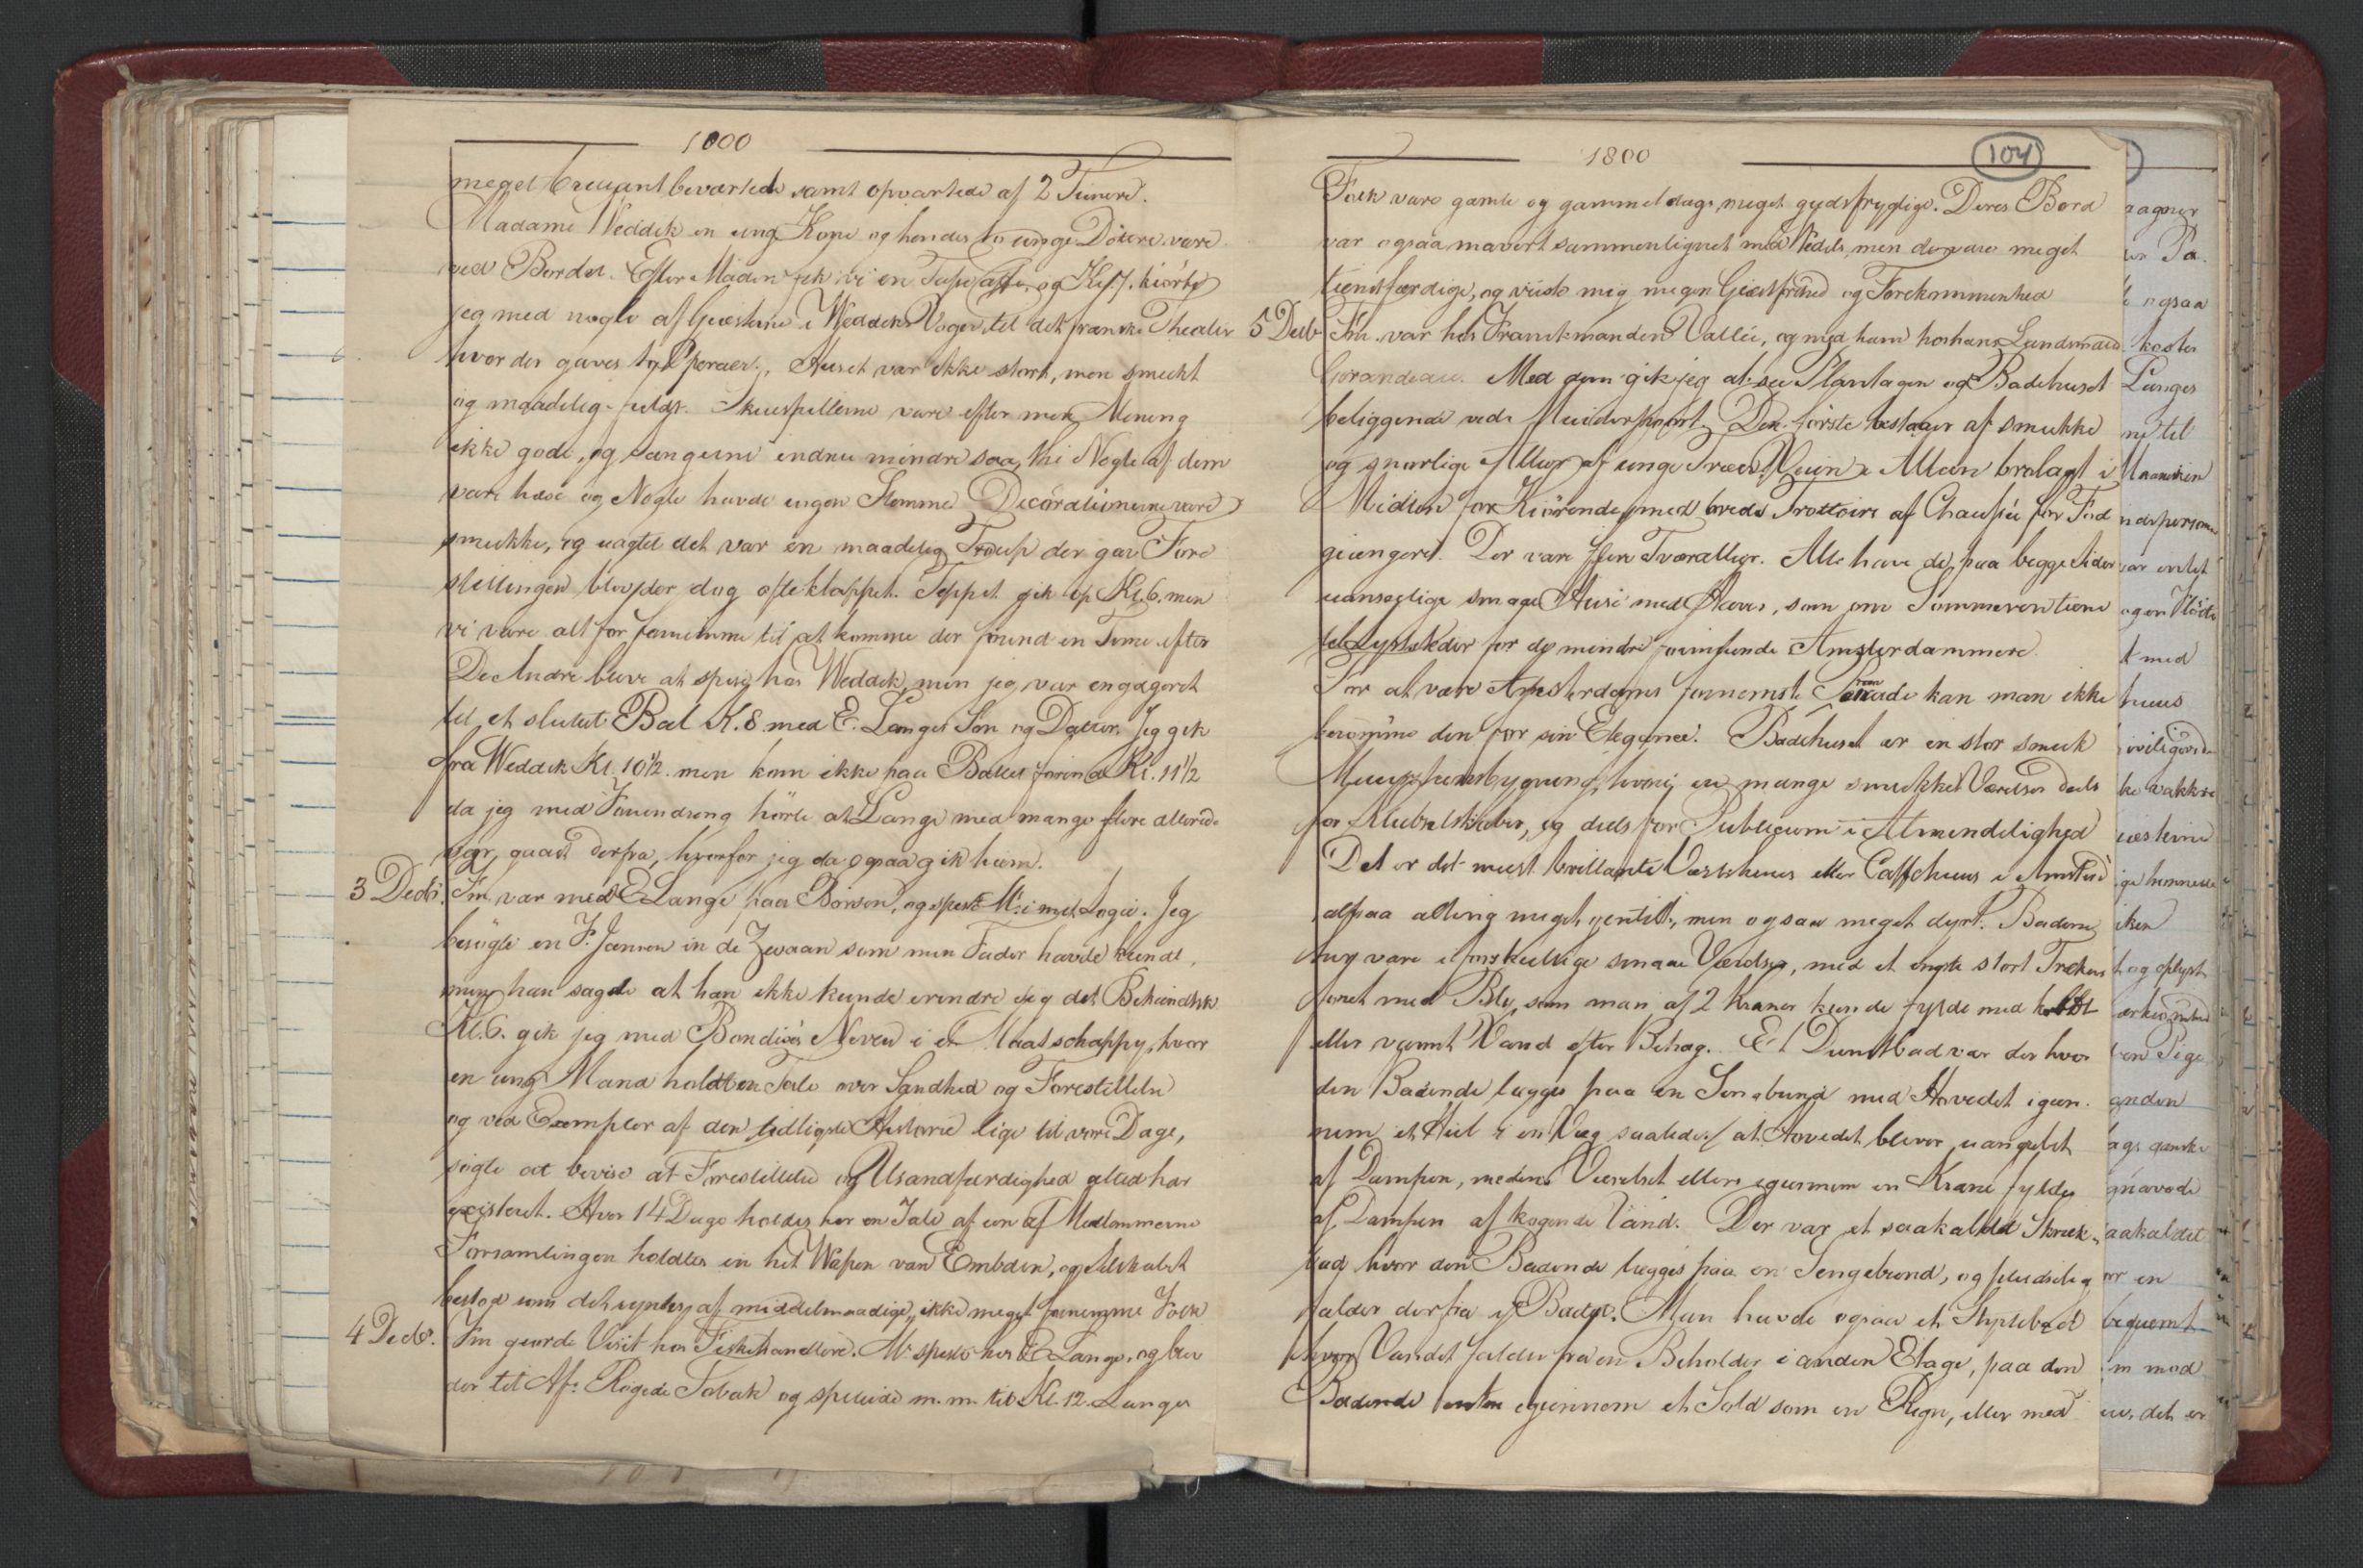 1800
meget brillant beværtede samt opvartede af 2 Tienere.
Madame Weddik en ung Kone og hendes to unge Döttre vare
ved Bordet. Efter Maden fik vi en Tasse Caffe, og Kl. 7. kiörte
jeg med nogle af Giesterne i Weddiks Vogn til det franske Theater
hvor der gaves to Operaer, Huset var ikke stort, men smukt
og maadelig fuldt. Skuespillerne vare efter min Mening
ikke gode, og Sangerne endnu mindre saa, thi Nogle af dem
vare hæse og Nogle havde ingen Stemme. Decorationerne vare
smukke, og uagtet det var en maadelig Troup der gav Fore
stillingen blev der dog ofte klappet. Teppet gik op Kl. 6. men
vi vare alt for fornemme til at komme der förend en Time efter
De Andre bleve at spise hos Weddik, men jeg var engageret
til et sluttet Bal Kl. 8 med E. Langes Son og Datter. Jeg gik
fra Weddik Kl. 10½. men kom ikke paa Ballet förend Kl. 11½
da jeg med Forundring hörte at Lange med mange flere allerede
var gaaet derfra, hvorfor jeg da ogsaa gik hiem.
3 Decb. Fm. var med E Lange paa Börsen, og spiste M. i mit Logie. Jeg
besögte en F. Jansen in de Zwaan som min Fader havde kiendt,
men han sagde at han ikke kunde erindre sig det Bekiendtsk
Kl. 6. gik jeg med Bondisés Neveu i et Maatschappy, hvor
en ung Mand holdt en Tale over Sandhed og Forestillelse
og ved Exempler af den tidligste Historie lige til vore Dage,
sögte at bevise at Forestillelse og Usandfærdighed altid har
existeret. Hver 14 Dage holdes her en Tale af een af Medlemmerne
Forsamlingen holdtes in het Wapen van Embden, og Selskabet
bestod som det syntes af middelmaadige, ikke meget fornemme Folk
4 Decbr. Fm giorde Visit hos Fiskehandlere. M. spiste hos E Lange, og blev
der til Af: Rögede Tobak og spillede m. m. til Kl. 12. Langes
1800
104
Folk vare gamle og gammeldags meget gudsfrygtige. Deres Bord
var ogsaa mavert sammenlignet med Weddiks, men de vare meget
tienstfærdige, og viiste mig megen Giestfrihed og Forekommenhed
5 Decb Fm. var hos Franskmanden Vallée, og med ham hos hans Landsmand
Gorandeau. Med dem gik jeg at see Plantagen og Badehuset
beliggende ved Muiderpoort. Den förste bestaaer af smukke
og snorlige Alleer af unge Træer. Veien i Alleen brolagt i
Midten for Kiörende, med brede Trottoirs af Chaussée for Fod
giængere. Der vare flere Tværalleer. Alle have de paa begge Sider
uansselige smaae Huse med Haver, som om Sommeren tiene
til Lyststeder for de mindre formuende Amsterdammere.
For at være Amsterdams fornemste Promenade kan man ikke
berömme den for sin Elegance. Badehuset er en stor smuk
Muurstensbygning, hvori ere mange smukke Værelser deels
for Klubselskaber, og deels for Publicum i Almindelighed
Det er det meest brillante Vertshuus eller Caffehuus i Amsterd
altsaa alting meget gentilt, men ogsaa meget dyrt. Badene
her vare i forskiellige smaae Værelser, med et engte stort Trækar
foret med Bly, som man af 2 Kraner kunde fylde med koldt
eller varmt Vand efter Behag. Et Dunstbad var der hvor
den Badende lægges paa en Sengebund med Hovedet igien
nem et Hul i en Væg saaledes at Hovedet bliver uangrebet
af Dampen, medens Værelset ellers igiennem en Krane fyldes
af Dampen af kogende Vand. Der var et saakaldet Skræk-
bad hvor den Badende lægges paa en Sengebund, og pludselig
falder derfra i Badet. Man havde ogsaa et Styrtebad
hvor Vandet falder fra en Beholder i anden Etage, paa den
Badende enten igiennem et Sold som en Regn, eller med